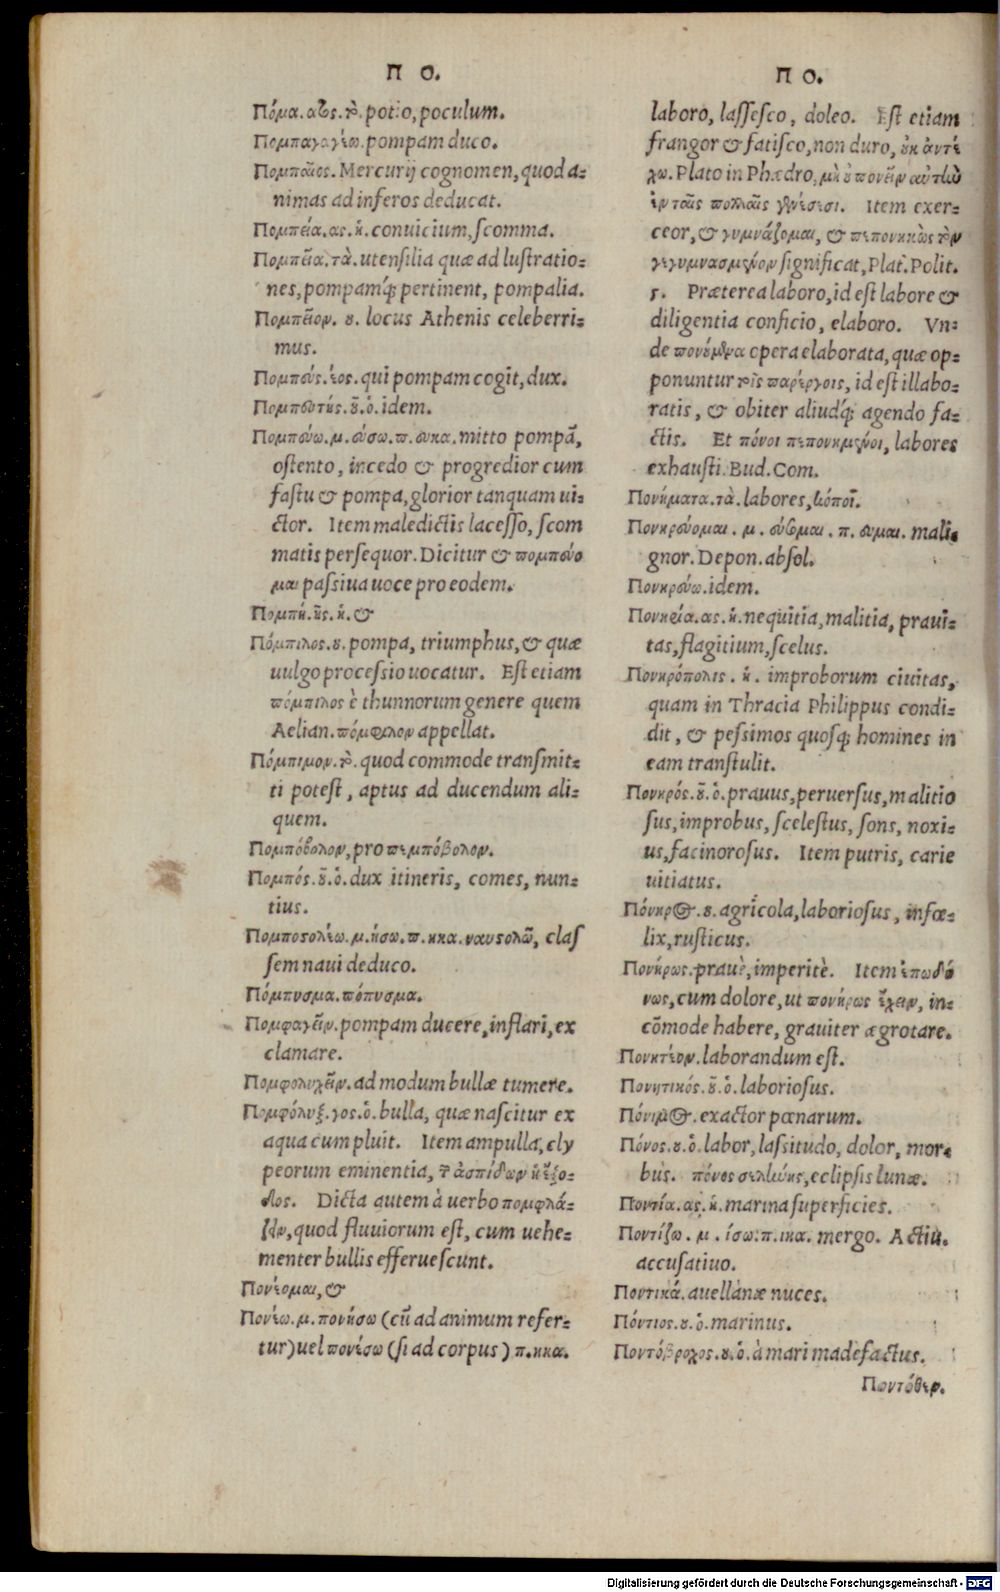 Π Ο.
Πόμα. ατος. τὸ. potio, poculum.
Πομπαγαγέω. pompam duco.
Πομπαῖος. Mercurij cognomen, quod a-
nimas ad inferos deducat.
Πομπεία. ας. ἡ. conuicium, scomma.
Πομπεῖα. τὰ. utensilia quæ ad lustratio-
nes, pompamq́; pertinent, pompalia.
Πομπεῖον. ȣ. locus Athenis celeberri-
mus.
Πομπεύς. έος. qui pompam cogit, dux.
Πομπευτής. ȣ͂. ὁ. idem.
Πομπεύω. μ. εύσω. π. ευκα. mitto pompā,
ostento, incedo & progredior cum
fastu & pompa, glorior tanquam ui-
ctor. Item maledictis lacesso, scom
matis persequor. Dicitur & πομπεύο
μαι passiua uoce pro eodem.
Πομπή. ῆς. ἡ. &
Πόμπιλος. ȣ. pompa, triumphus, & quæ
uulgo processio uocatur. Est etiam
πόμπιλος è thunnorum genere quem
Aelian. πόμφιλον appellat.
Πόμπιμον. τὸ. quod commode transmit-
ti potest, aptus ad ducendum ali-
quem.
Πομπόβολον, pro πεμπόβολον.
Πομπός. ȣ͂. ὁ. dux itineris, comes, nun-
tius.
Πομποστολέω. μ. ήσω. π. ηκα. ναυστολῶ, clas
sem naui deduco.
Πόμπυσμα. πόπυσμα.
Πομφαγεῖν. pompam ducere, inflari, ex
clamare.
Πομφολυχεῖν. ad modum bullæ tumere.
Πομφόλυξ. γος. ὁ. bulla, quæ nascitur ex
aqua cum pluit. Item ampulla, cly
peorum eminentia, τ῀ ἀσπίδων ἡ ἔξο-
δος. Dicta autem à uerbo πομφλά-
ζειν, quod fluuiorum est, cum uehe-
menter bullis efferuescunt.
Πονέομαι, &
Πονέω. μ. πονήσω (cū ad animum refer-
tur) uel πονέσω (si ad corpus) π. ηκα.
Π Ο.
laboro, lassesco, doleo. Est etiam
frangor & fatisco, non duro, ȣκ ἀντέ
χω. Plato in Phædro, μὴ ὑπονεῖν αὐτὼ
ἐν ταῖς πολλαῖς γενέσεσι. Item exer-
ceor, & γυμνάζομαι, & πεπονηκὼς τὸν
γεγυμνασμένον significat, Plat. Polit.
5. Præterea laboro, id est labore &
diligentia conficio, elaboro. Vn-
de πονούμενα opera elaborata, quæ op-
ponuntur τοῖς παρέργοις, id est illabo-
ratis, & obiter aliudq́; agendo fa-
ctis. Et πόνοι πεπονημένοι, labores
exhausti. Bud. Com.
Πονήματα. τὰ. labores, κόποι.
Πονηρεύομαι. μ. εύσομαι. π. ευμαι. mali-
gnor. Depon. absol.
Πονηρεύω. idem.
Πονηρία. ας. ἡ. nequitia, malitia, praui-
tas, flagitium, scelus.
Πονηρόπολις. ἡ. improborum ciuitas,
quam in Thracia Philippus condi-
dit, & pessimos quosq; homines in
eam transtulit.
Πονηρός. ȣ͂. ὁ. prauus, peruersus, malitio
sus, improbus, scelestus, sons, noxi-
us, facinorosus. Item putris, carie
uitiatus.
Πόνηρος. ȣ. agricola, laboriosus, infœ-
lix, rusticus.
Πονήρως. prauè, imperitè. Item ἐπωδύ
νως, cum dolore, ut πονήρως ἔχειν, in-
cōmode habere, grauiter ægrotare.
Πονητέον. laborandum est.
Πονητικός. ȣ͂. ὁ. laboriosus.
Πόνιμος. exactor pœnarum.
Πόνος. ȣ. ὁ. labor, lassitudo, dolor, mor-
bus. πόνος σελήνης, eclipsis lunæ.
Ποντία. ας. ἡ. marina superficies.
Ποντίζω. μ. ίσω. π. ικα. mergo. Actiu.
accusatiuo.
Ποντικά. auellanæ nuces.
Πόντιος. ȣ. ὁ. marinus.
Ποντόβροχος. ȣ. ὁ. à mari madefactus.
Ποντόθερ.
Digitalisierung gefördert durch die Deutsche Forschungsgemeinschaft - DFG